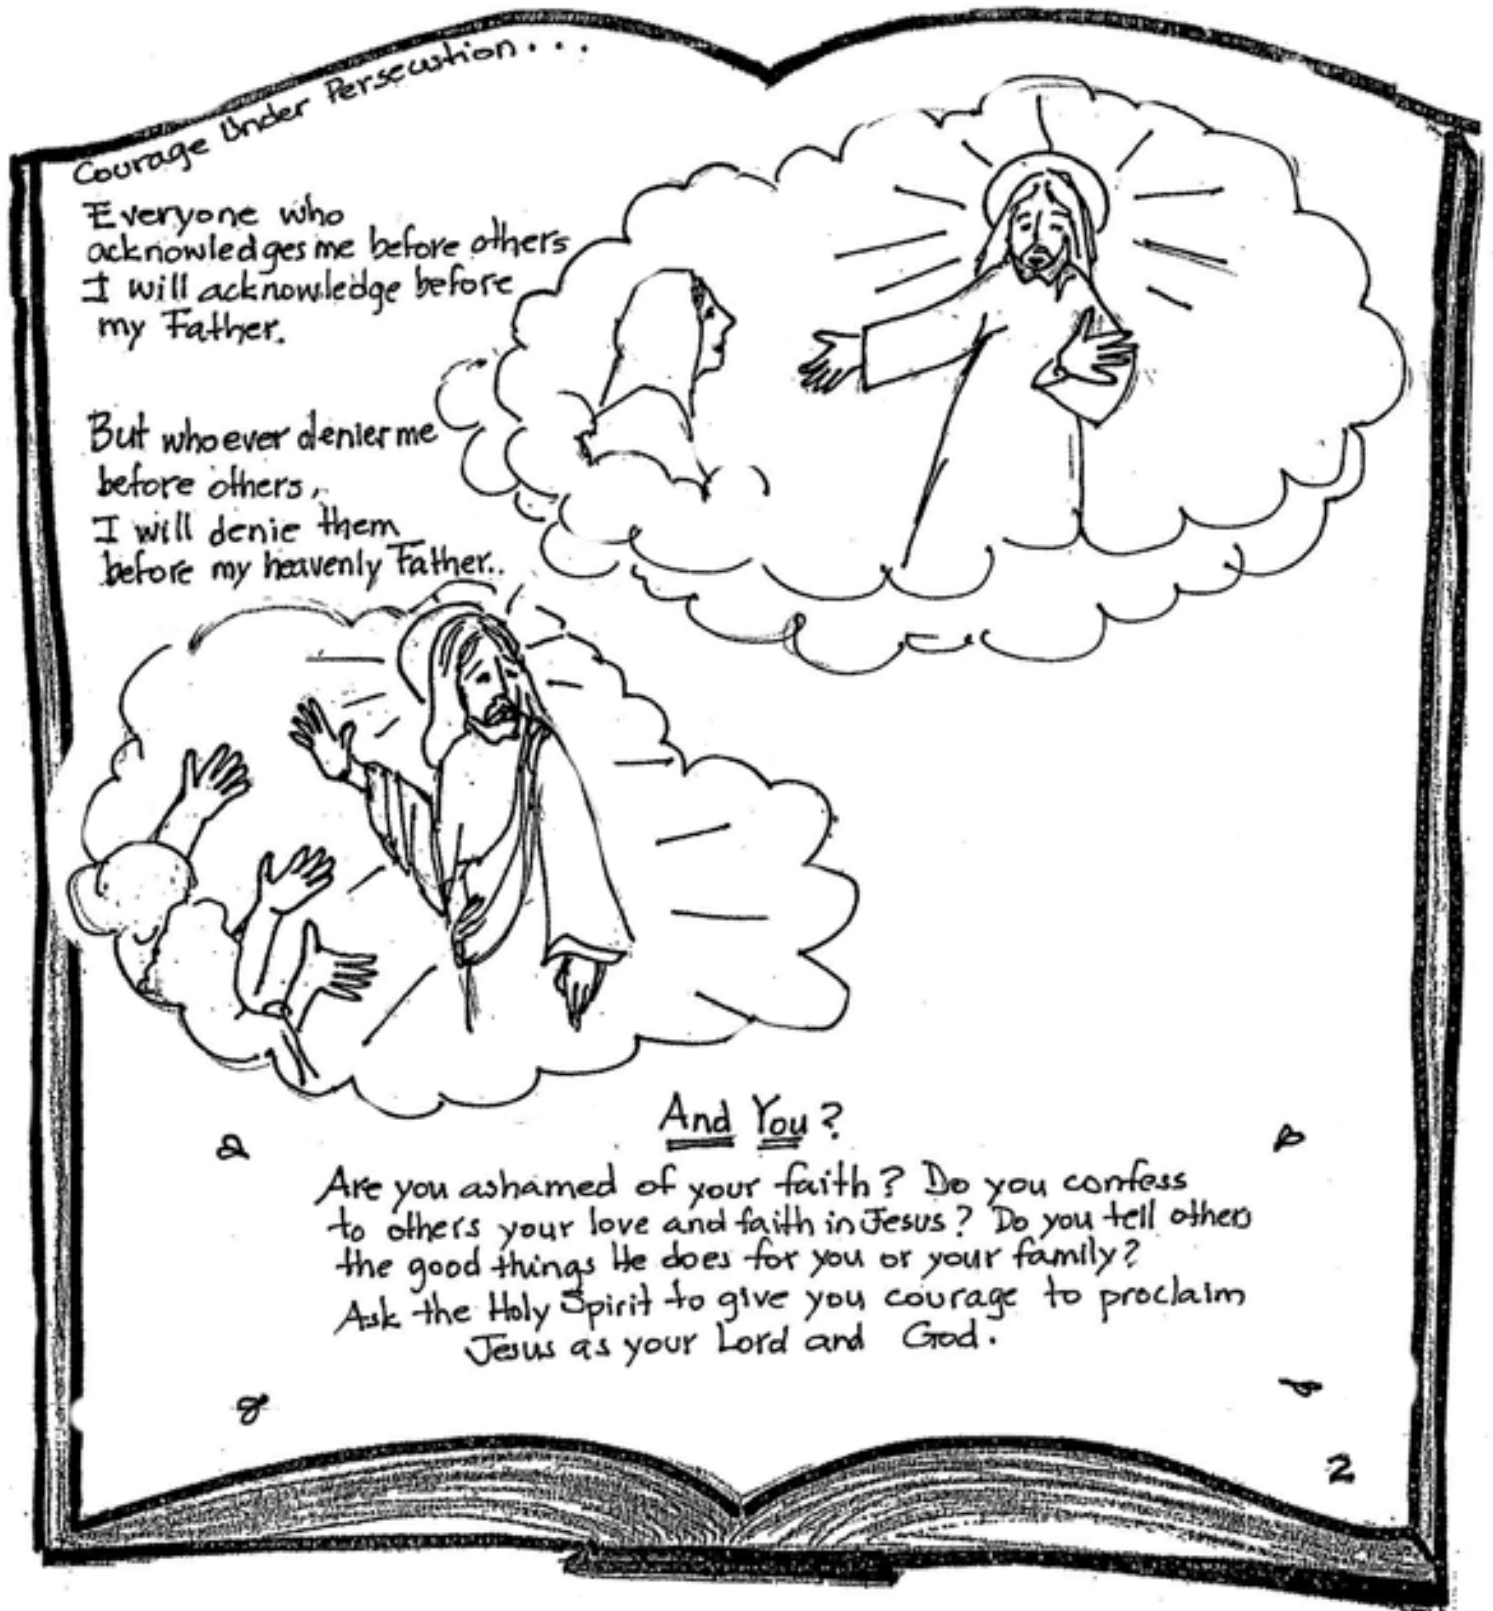 Courage Under Persecution...
Everyone who
acknowledges me before others
I will acknowledge before
my Father.
But whoever denier me
before others,
I will denie them
before my heavenly Father..
And You?
Are you ashamed of your faith? Do you confess
to others your love and faith in Jesus? Do you tell others
the good things He does for you or your family?
Ask the Holy Spirit to give you courage to proclaim
Jesus as your Lord and God.
2